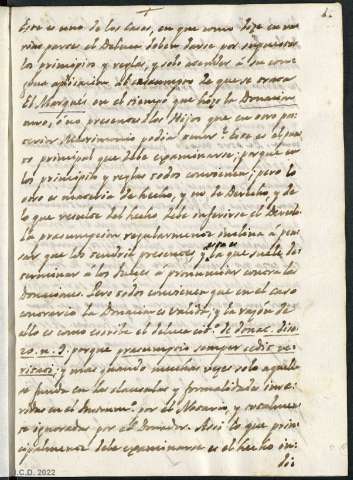 1.
Este es uno de los casos, en que como dixe en va
rias partes el Deluca deben darse por supuestos
los principios y reglas, y solo atender à su corre
spectiva aplicacion al caso de que se trata
El Marques en el tiempo que hizo la Donacion
tuvo, ò no presentes los Hijos que en otro pos
terior Matrimonio podia tener? Este es el pun
to principal que debe examinarse; porque en
los principios y reglas todos convienen; pero lo
otro es materia de hecho, y no de Derecho, y de
lo que resulte del hecho debe inferirse el Derecho
La presumpcion regularmente inclina à pen
sar que los tendria presentes, y la que suele de
terminar à los Jueces à pronunciar contra las
Donaciones. Pero todos convienen que en el caso
contrario la Donacion es valida; y la razon de
ello es como escribe el Deluca citdo. de Donac. disc.
20. n. 9. porque presumptio semper cedit ve
ritati; y mas quando muchas veces solo aquella
se funda en las clausulas y formalidades inser
tas en el Instrumto. por el Notario, y totalmente
se ignoradas por el Donador. Asi lo que prin
cipalmente debe examinarse es el hecho in
di
I.C.D. 2022